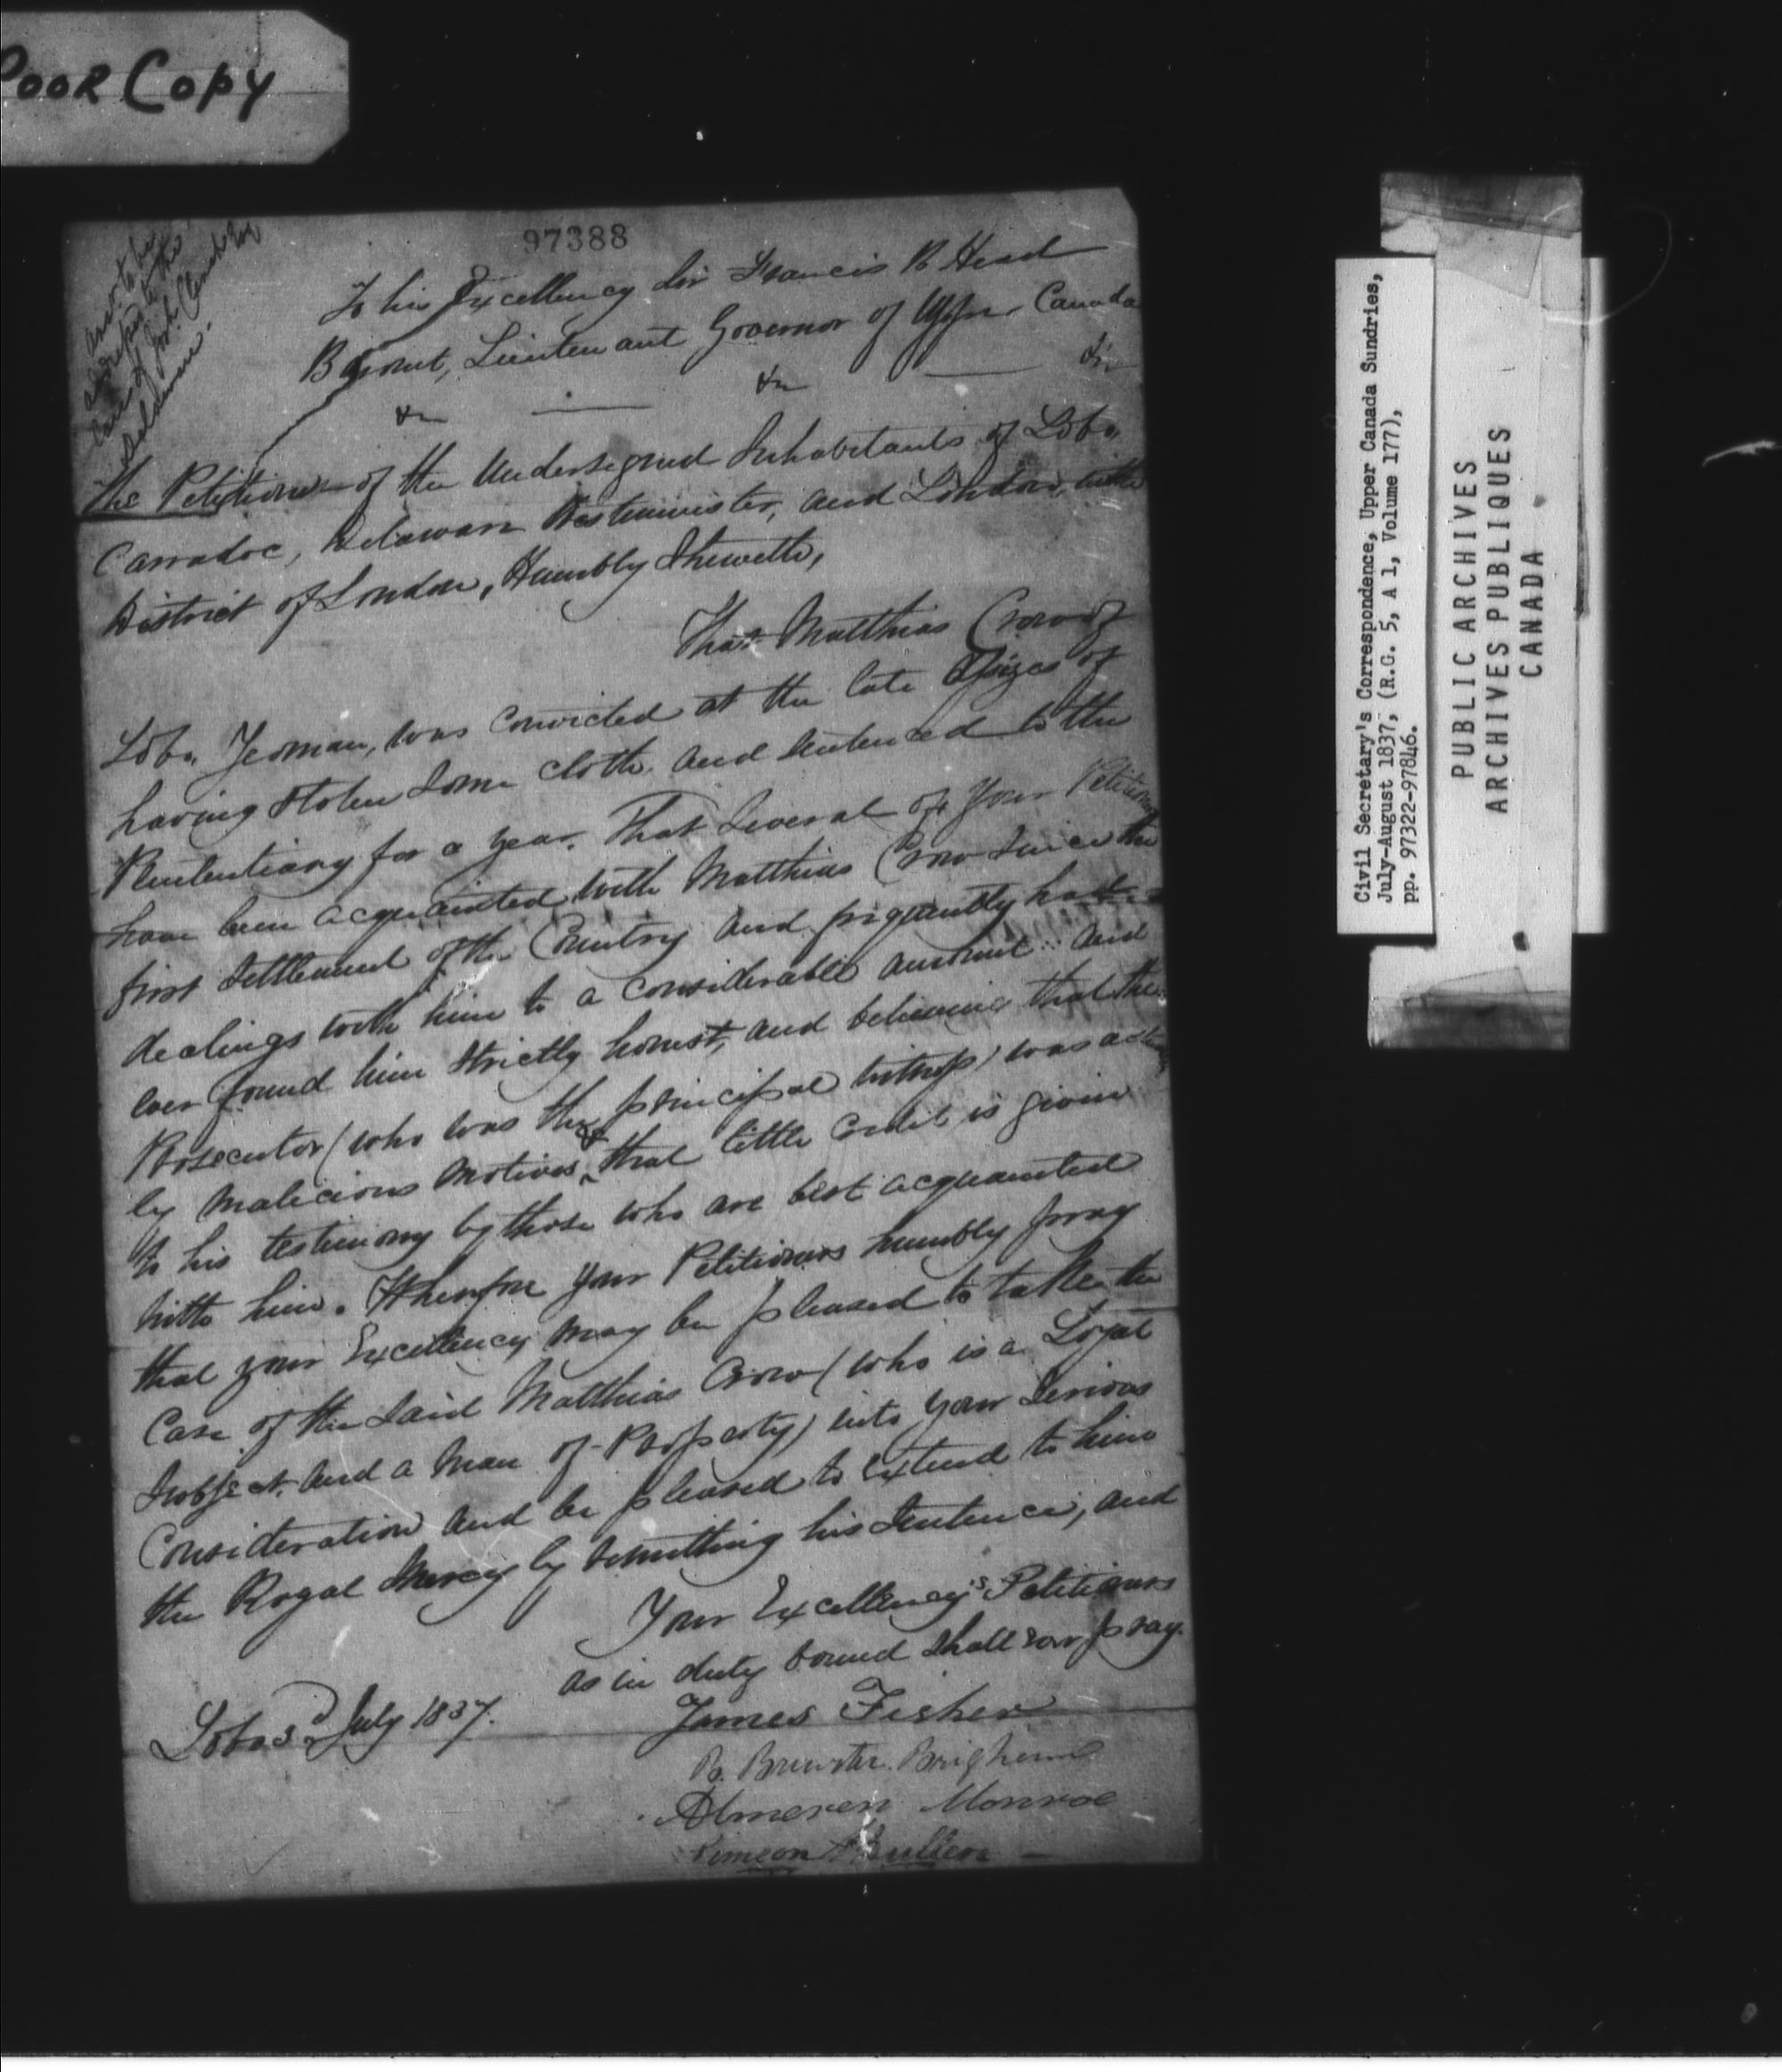 POOR COPY
97388
Answr to be
addressed to the
care of Clench Esq
Delaware.
To his Excellency Sir Francis B Head
Baronet, Lieutenant Governor of Upper Canada
&c — &c — &c
The Petition of the Undersigned Inhabitants of Lobo,
Carradoc, Delaware Westminister, and London, in the
District of London, Humbly Sheweth,
That Matthias Crow of
Lobo, Yeoman, was convicted at the late Assizes of
having stolen some cloth, and sentenced to the
Penitentiary for a year. That several of Your Petition
have been acquainted with Matthias Crow since the
first settlement of the Country and friquently had
dealings with him to a considerable amount and
ever found him strictly honest, and believing that the
Prosecutor (who was the principal witness) was
by malicious motives, & that little credit is given
to his testimony by those who are best acquainted
with him. Wherefore your Petitioners humbly pray
that your Excellency may be pleased to take the
Case of the said Matthias Crow (who is a Loyal
Subject and a Man of Property) into your serious
Consideration and be pleased to extend to him
the Royal Mercy by remitting his sentence, and
Your Excellency's Petitioners
as in duty bound shall ever pray.
Lobo 3d July 1837.
James Fisher
B. Brewster Brigham
Almeren Monroe
Simeon Bullen
Civil Secretary's Correspondence, Upper Canada Sundries,
July-August 1837, (R.G. 5, A 1, Volume 177),
pp. 97322-97846.
PUBLIC ARCHIVES
ARCHIVES PUBLIQUES
CANADA